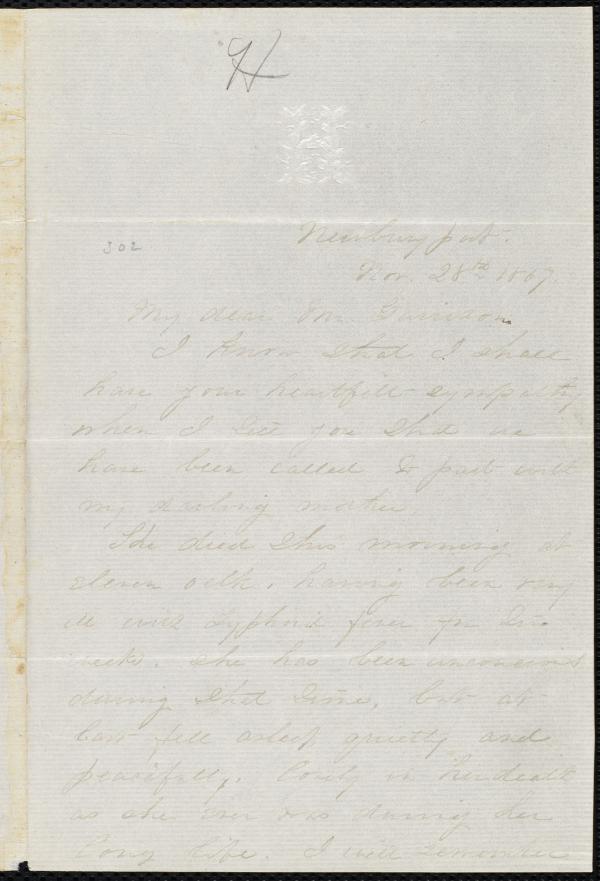 H
302
Newburyport.
Nov. 28th 1867.
My dear Mr. Garrison
I know that I shall
have your heartfelt sympathy
when I tell you that we
have been called to part with
my darling mother.
She died this morning at
eleven oclk, having been very
ill with typhoid fever for two
weeks. She has been unconscious
during that time, but at
last fell asleep quietly and
peacefully. Lovely in her death
as she ever was during her
long life. I will remember